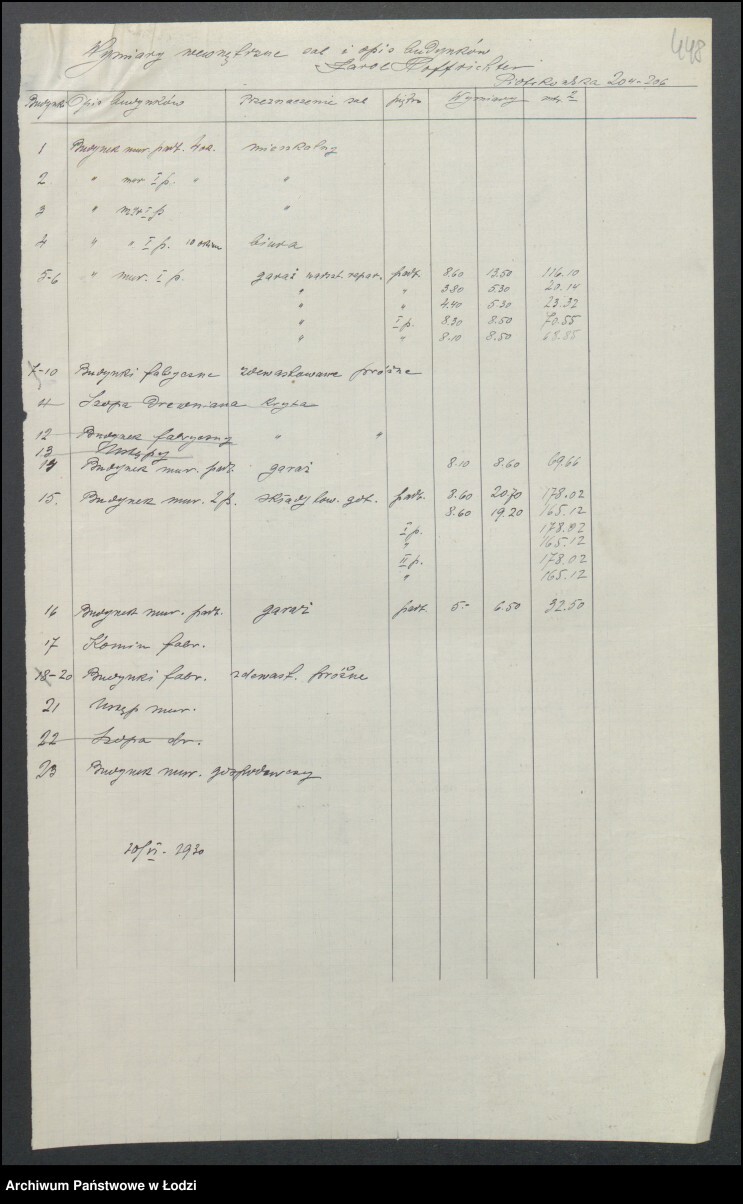 448
Wymiary wewnętrzne sal i opis budynków
"Karol Hoffrichter"
Piotrkowska 204-206
Budynki Opis budynków Przeznaczenie sal piętro Wymiary mtr 2
1 Budynek mur. part. mieszkalny
2 " mur I p. " "
3 " mur I p. "
4 " " I p. biura
5-6 " mur. I p. garaż warszt. repar. part. 8.60 13.50 116.10
" " 3.80 5.30 20.14
" " 4.40 5.30 23.32
" I p. 8.30 8.50 70.55
" " 8.10 8.50 68.85
7-10 Budynki fabryczne zdewastowane próżne
11 Szopa Drewniana kryta
12 Budynek fabryczny " "
13 Ustępy
14 Budynek mur. part. garaż 8.10 8.60 69.66
15. Budynek mur. 2 p. składy tow. got. part. 8.60 20.70 178.02
8.60 19.20 165.12
I p. 178.02
" 165.12
II p. 178.02
" 165.12
16 Budynek mur. part. garaż part 5.- 6.50 32.50
17 Komin fabr.
18-20 Budynki fabr. zdewast. próżne
21 Ustęp mur.
22 Szopa dr.
23 Budynek mur. gospodarczy
30/VI - 1930
Archiwum Państwowe w Łodzi